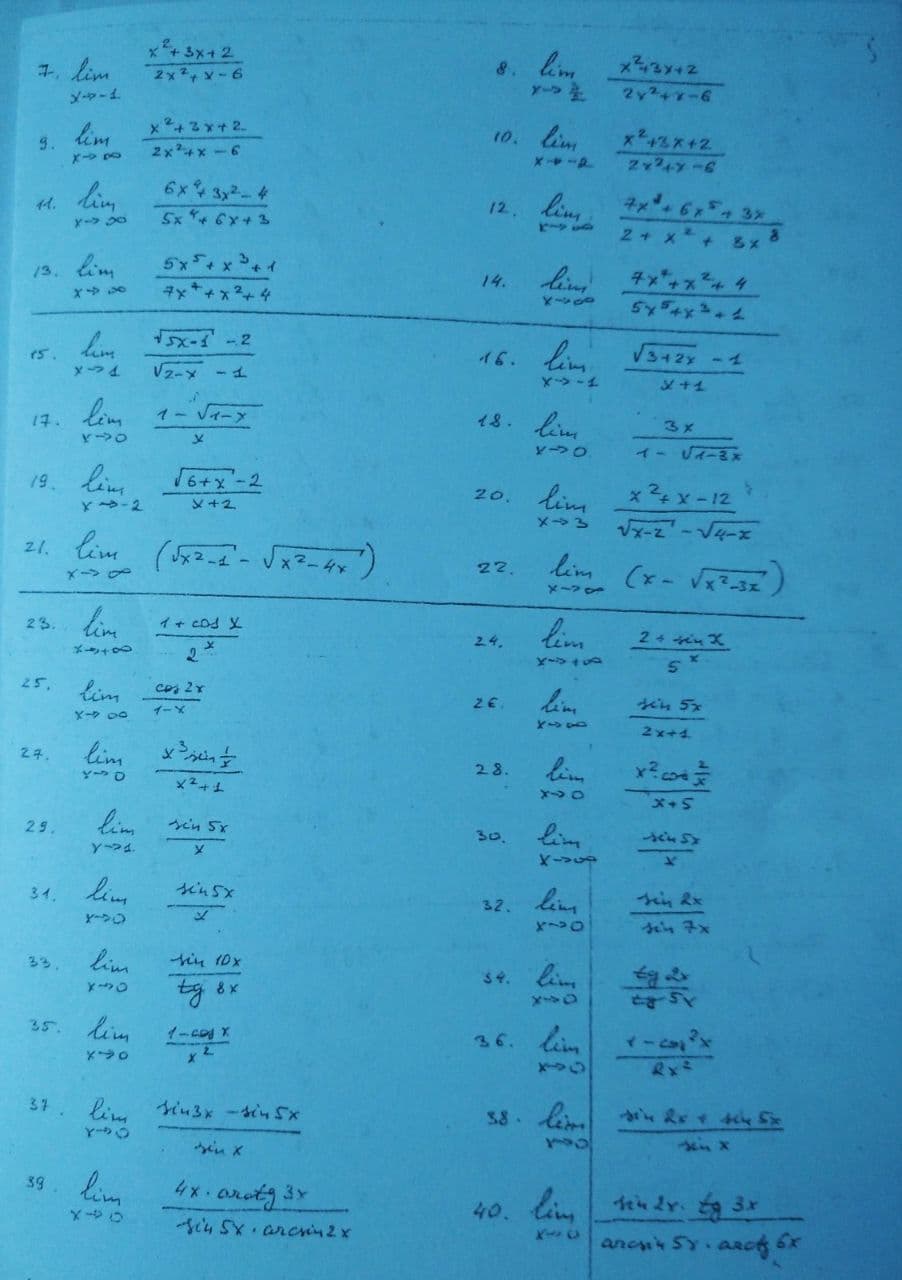 7. lim x→-1 (x²+3x+2)/(2x²+x-6)
8. lim x→3/2 (x²+3x+2)/(2x²+x-6)
9. lim x→∞ (x²+3x+2)/(2x²+x-6)
10. lim x→-2 (x²+3x+2)/(2x²+x-6)
11. lim x→∞ (6x⁴+3x²-4)/(5x⁴+6x+3)
12. lim x→∞ (7x⁸+6x⁵+3x)/(2+x²+3x⁸)
13. lim x→∞ (5x⁵+x³+1)/(7x⁴+x²+4)
14. lim x→∞ (7x⁴+x²+4)/(5x⁵+x³+1)
15. lim x→1 (√(5x-1) -2)/(√(2-x) -1)
16. lim x→-1 (√(3+2x) -1)/(x+1)
17. lim x→0 (1-√(1-x))/x
18. lim x→0 3x/(1-√(1-3x))
19. lim x→-2 (√(6+x) -2)/(x+2)
20. lim x→3 (x²+x-12)/(√(x-2) -√(4-x))
21. lim x→∞ (√(x²-1) - √(x²-4x))
22. lim x→∞ (x-√(x²-3x))
23. lim x→+∞ (1+cos x)/2ˣ
24. lim x→+∞ (2+sin x)/5ˣ
25. lim x→∞ cos 2x/(1-x)
26. lim x→∞ sin 5x/(2x+1)
27. lim x→0 (x³ sin 1/x)/(x²+1)
28. lim x→0 (x²·cos 2/x)/(x+5)
29. lim x→1 sin 5x/x
30. lim x→∞ sin 5x/x
31. lim x→0 sin 5x/x
32. lim x→0 sin 2x/sin 7x
33. lim x→0 sin 10x/tg 8x
34. lim x→0 tg 2x/tg 5x
35. lim x→0 (1-cos x)/x²
36. lim x→0 (1-cos²x)/2x²
37. lim x→0 (sin 3x - sin 5x)/sin x
38. lim x→0 (sin 2x + sin 5x)/sin x
39. lim x→0 (4x·arctg 3x)/(sin 5x·arcsin 2x)
40. lim x→0 (sin 2x·tg 3x)/(arcsin 5x·arctg 6x)